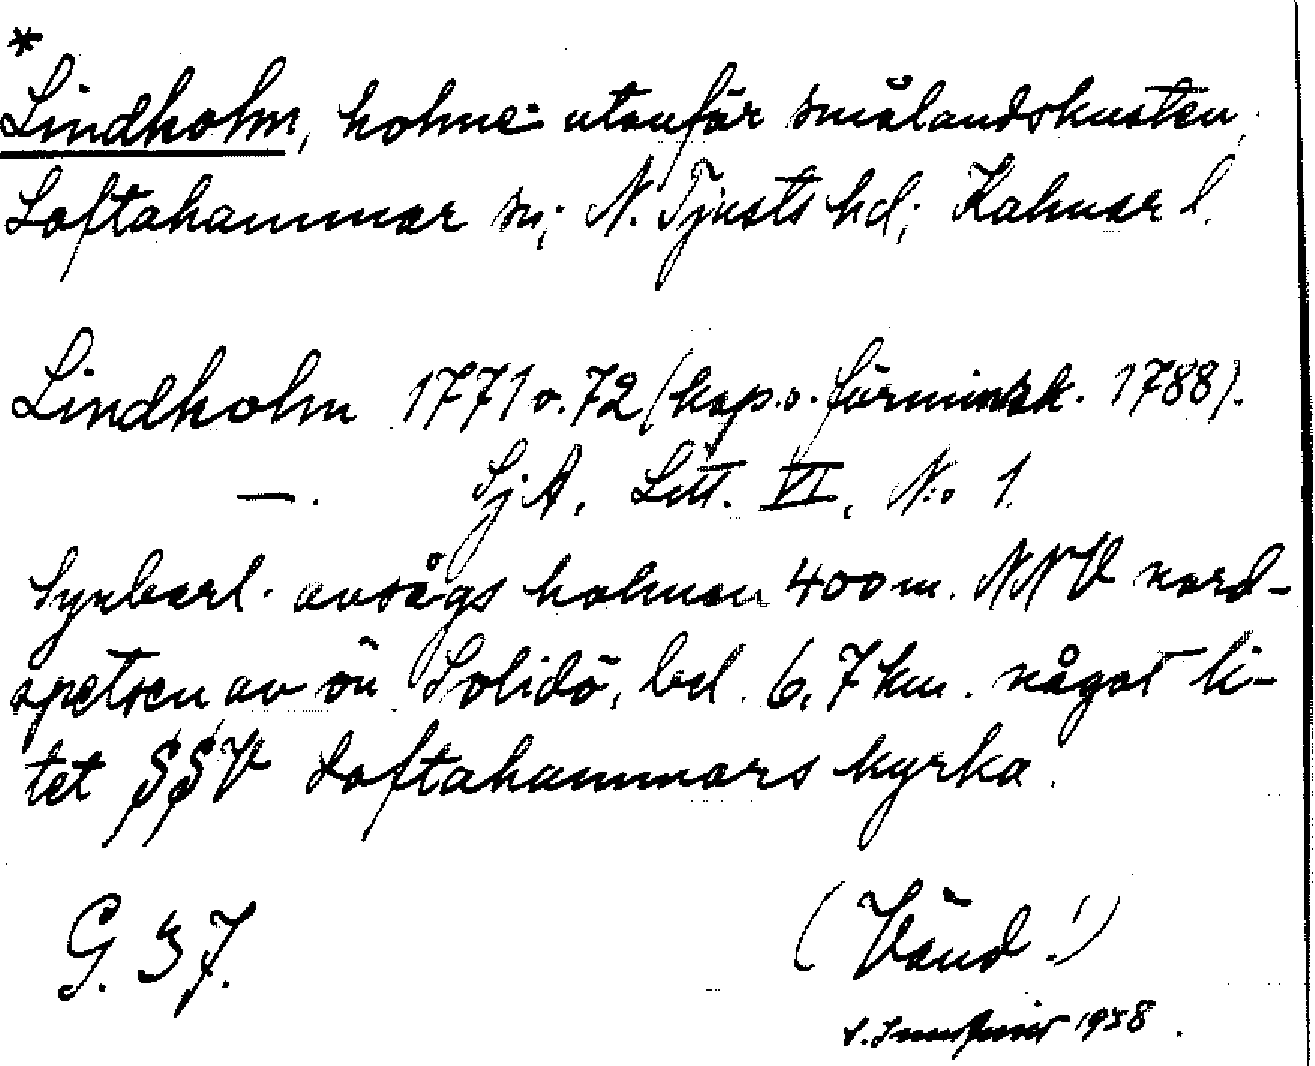 *
Lindholm, holme utanför smålandskusten,
Loftahammar sn; N. Tjusts hd; Kalmar l.
Lindholm 1771 o. 72 (kop. o. förminsk. 1788).
—. SjA, Litt. VI, No 1.
Synbarl. avsågs holmen 400 m. NNV nord-
spetsen av ön Solidö, bel. 6,7 km. något li-
tet SSV Loftahammars kyrka.
G. 37.
(Vänd!)
1958.